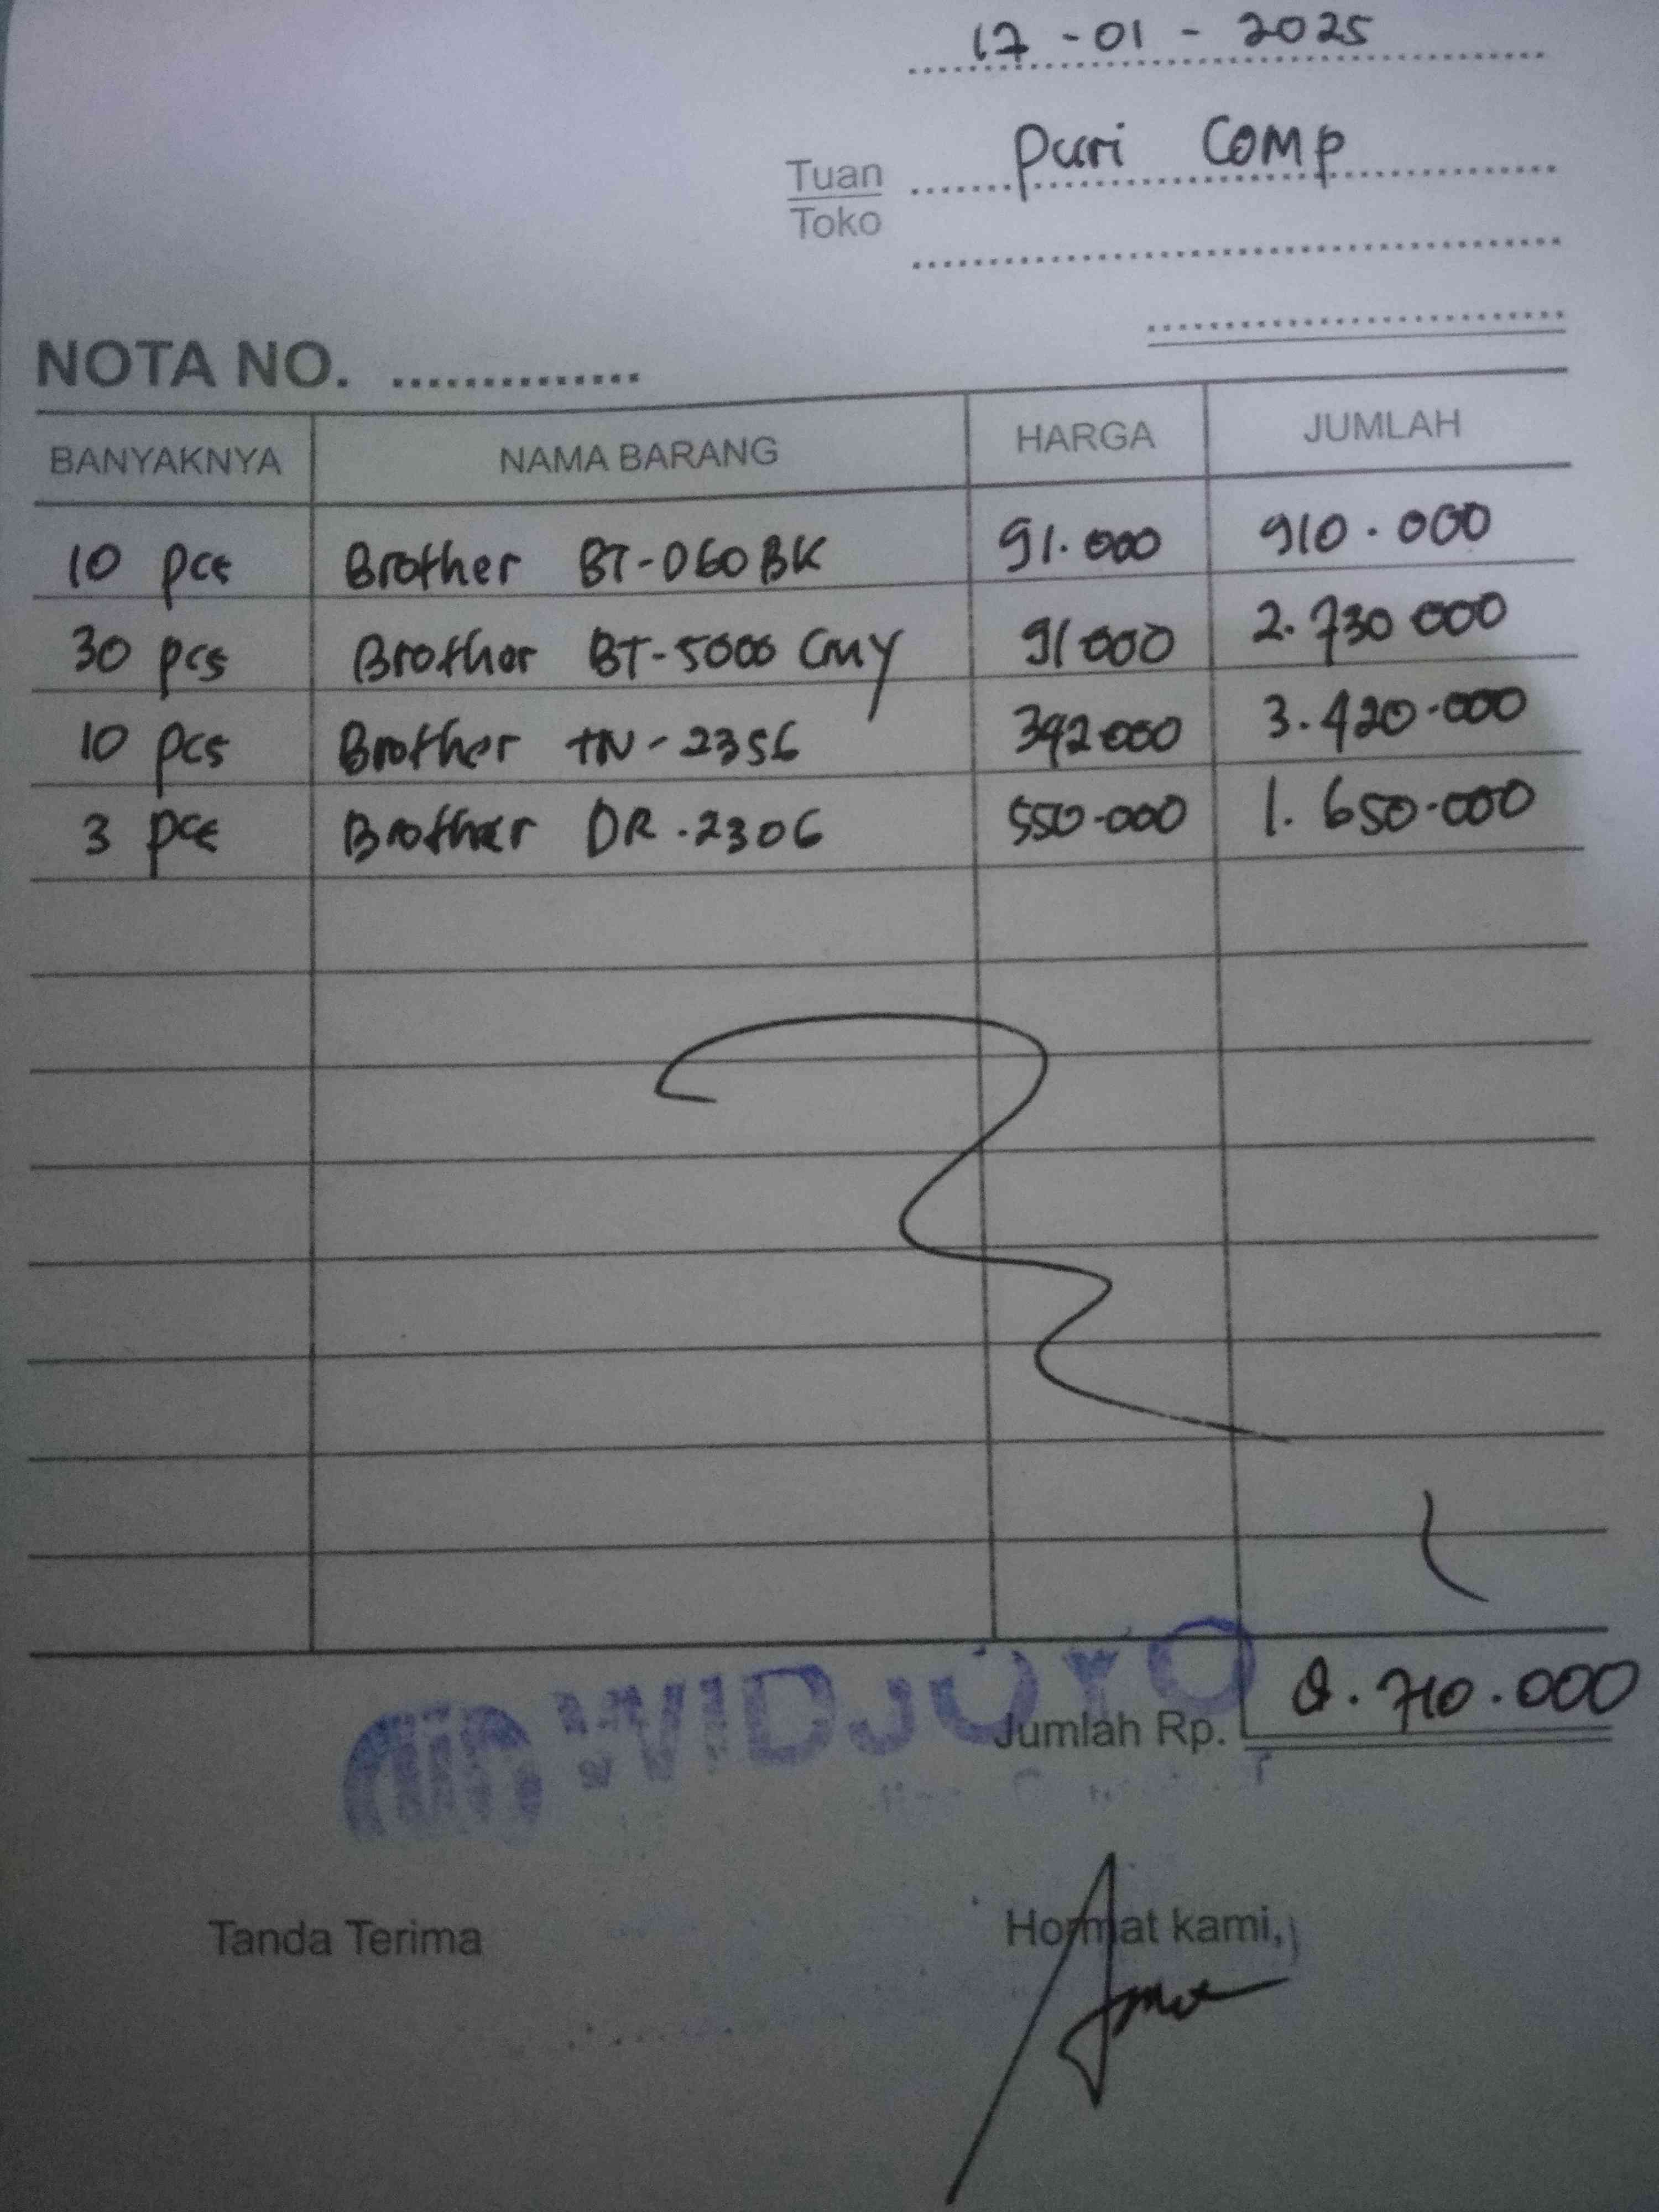 17 - 01 - 2025
Tuan Puri Comp
Toko
NOTA NO. ..............
BANYAKNYA NAMA BARANG HARGA JUMLAH
10 pcs Brother BT-D60BK 91.000 910.000
30 pcs Brother BT-5000 CMY 91000 2.730 000
10 pcs Brother TN-2356 342000 3.420.000
3 pcs Brother DR.2306 550.000 1.650.000
WIDJOYO
Jumlah Rp. 8.710.000
Tanda Terima Hormat kami,